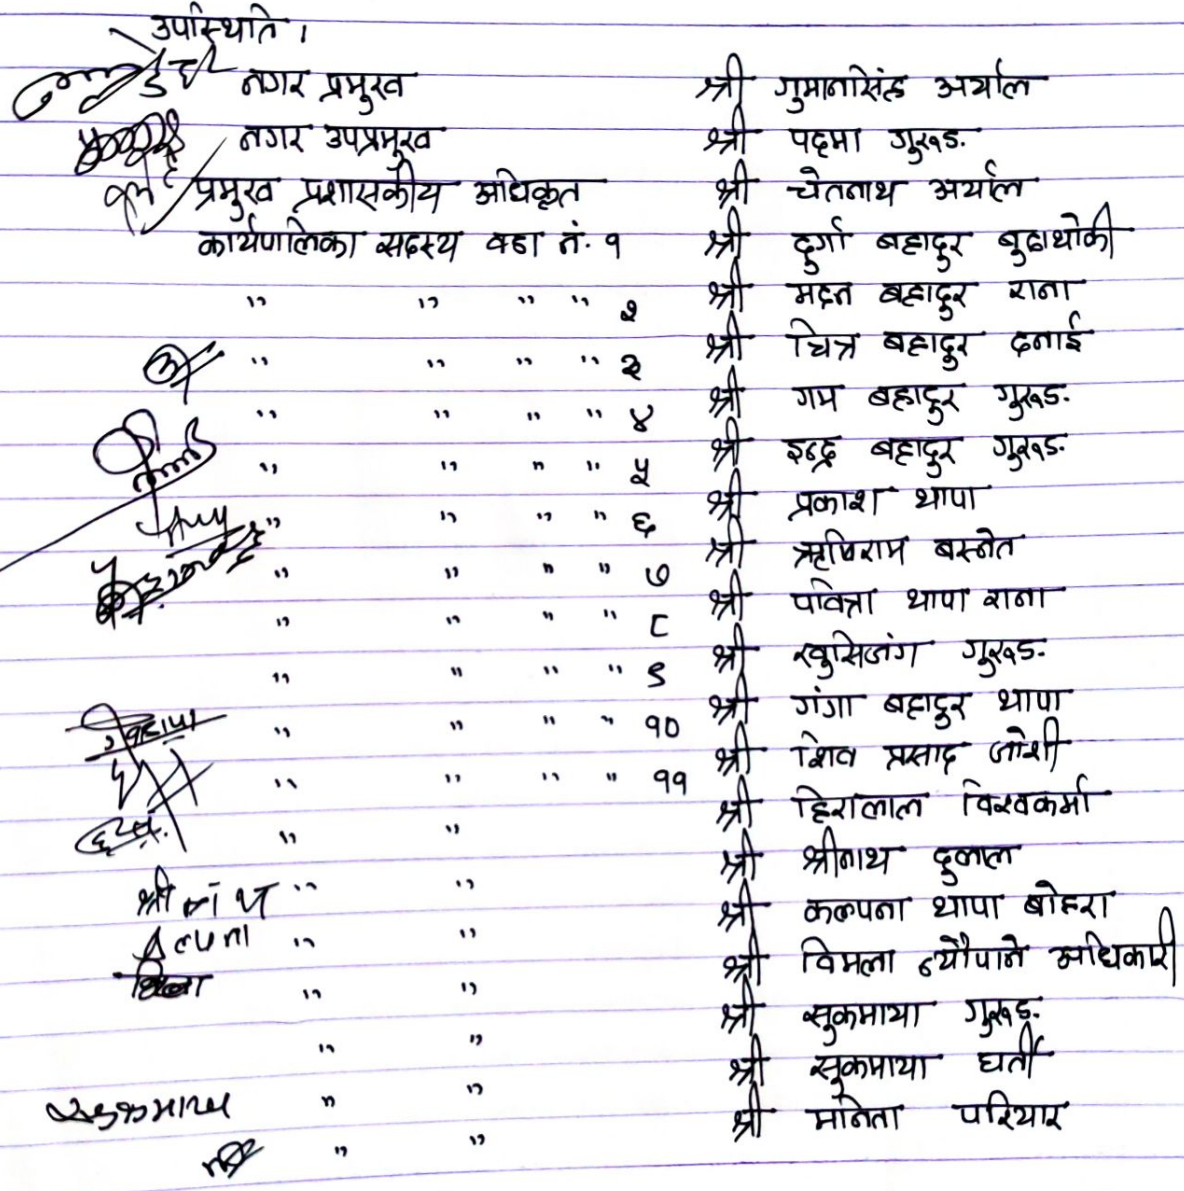 उपस्थिति ।
नगर प्रमुख श्री गुमानसिंह अर्याल
नगर उपप्रमुख श्री पदमा गुरुङ
प्रमुख प्रशासकीय अधिकृत श्री चेतनाथ अर्याल
कार्यपालिका सदस्य वडा नं. १ श्री दुर्गा बहादुर बुढाथोकी
" " " " २ श्री मदन बहादुर राना
" " " " ३ श्री चित्र बहादुर दनाई
" " " " ४ श्री गम बहादुर गुरुङ
" " " " ५ श्री इन्द्र बहादुर गुरुङ
" " " " ६ श्री प्रकाश थापा
" " " " ७ श्री ऋषिराम बस्नेत
" " " " ८ श्री पवित्रा थापा राना
" " " " ९ श्री खुसिजंग गुरुङ
" " " " १० श्री गंगा बहादुर थापा
" " " " ११ श्री शिव प्रसाद जोशी
" " श्री हिरालाल विश्वकर्मा
श्रीनाथ " " श्री श्रीनाथ दुलाल
" " श्री कल्पना थापा बोहरा
" " श्री विमला न्यौपाने अधिकारी
" " श्री सुकमाया गुरुङ
सुकमाया " " श्री सुकमाया घर्ती
" " श्री मनिता परियार